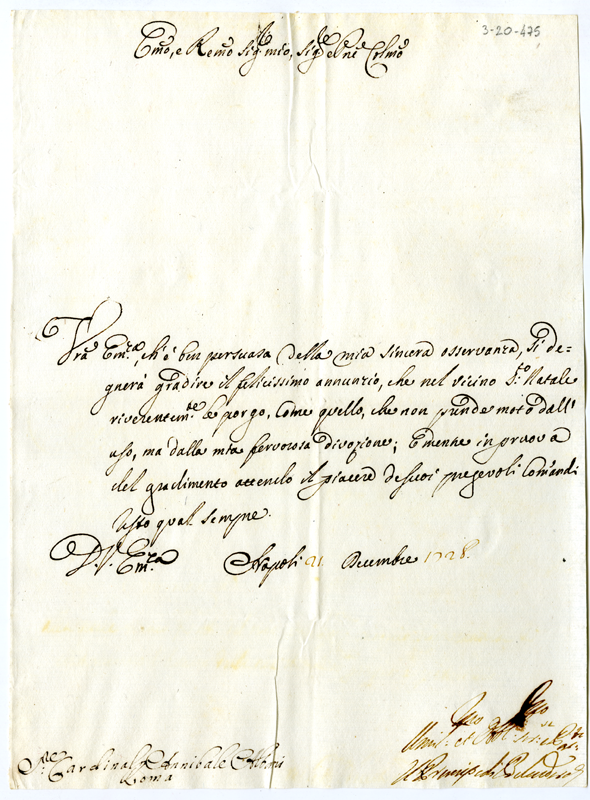 3-20-475
Emo, e Remo Sigre mio, Sigre e Pne Colmo
Vra Emza, ch'è ben persuasa della mia sincera osservanza, si de-
gnerà gradire il felicissimo annunzio, che nel vicino Sto Natale
riverentemte le porgo, come quello, che non prende moto dall'
uso, ma dalla mia fervorosa divozione; E mentre in pruova
del gradimento attendo il piacere de suoi pregevoli comandi
resto qual sempre.
D. V. Emza Napoli 21 Decembre 1728.
Sre Cardinal Annibale Albani
Roma